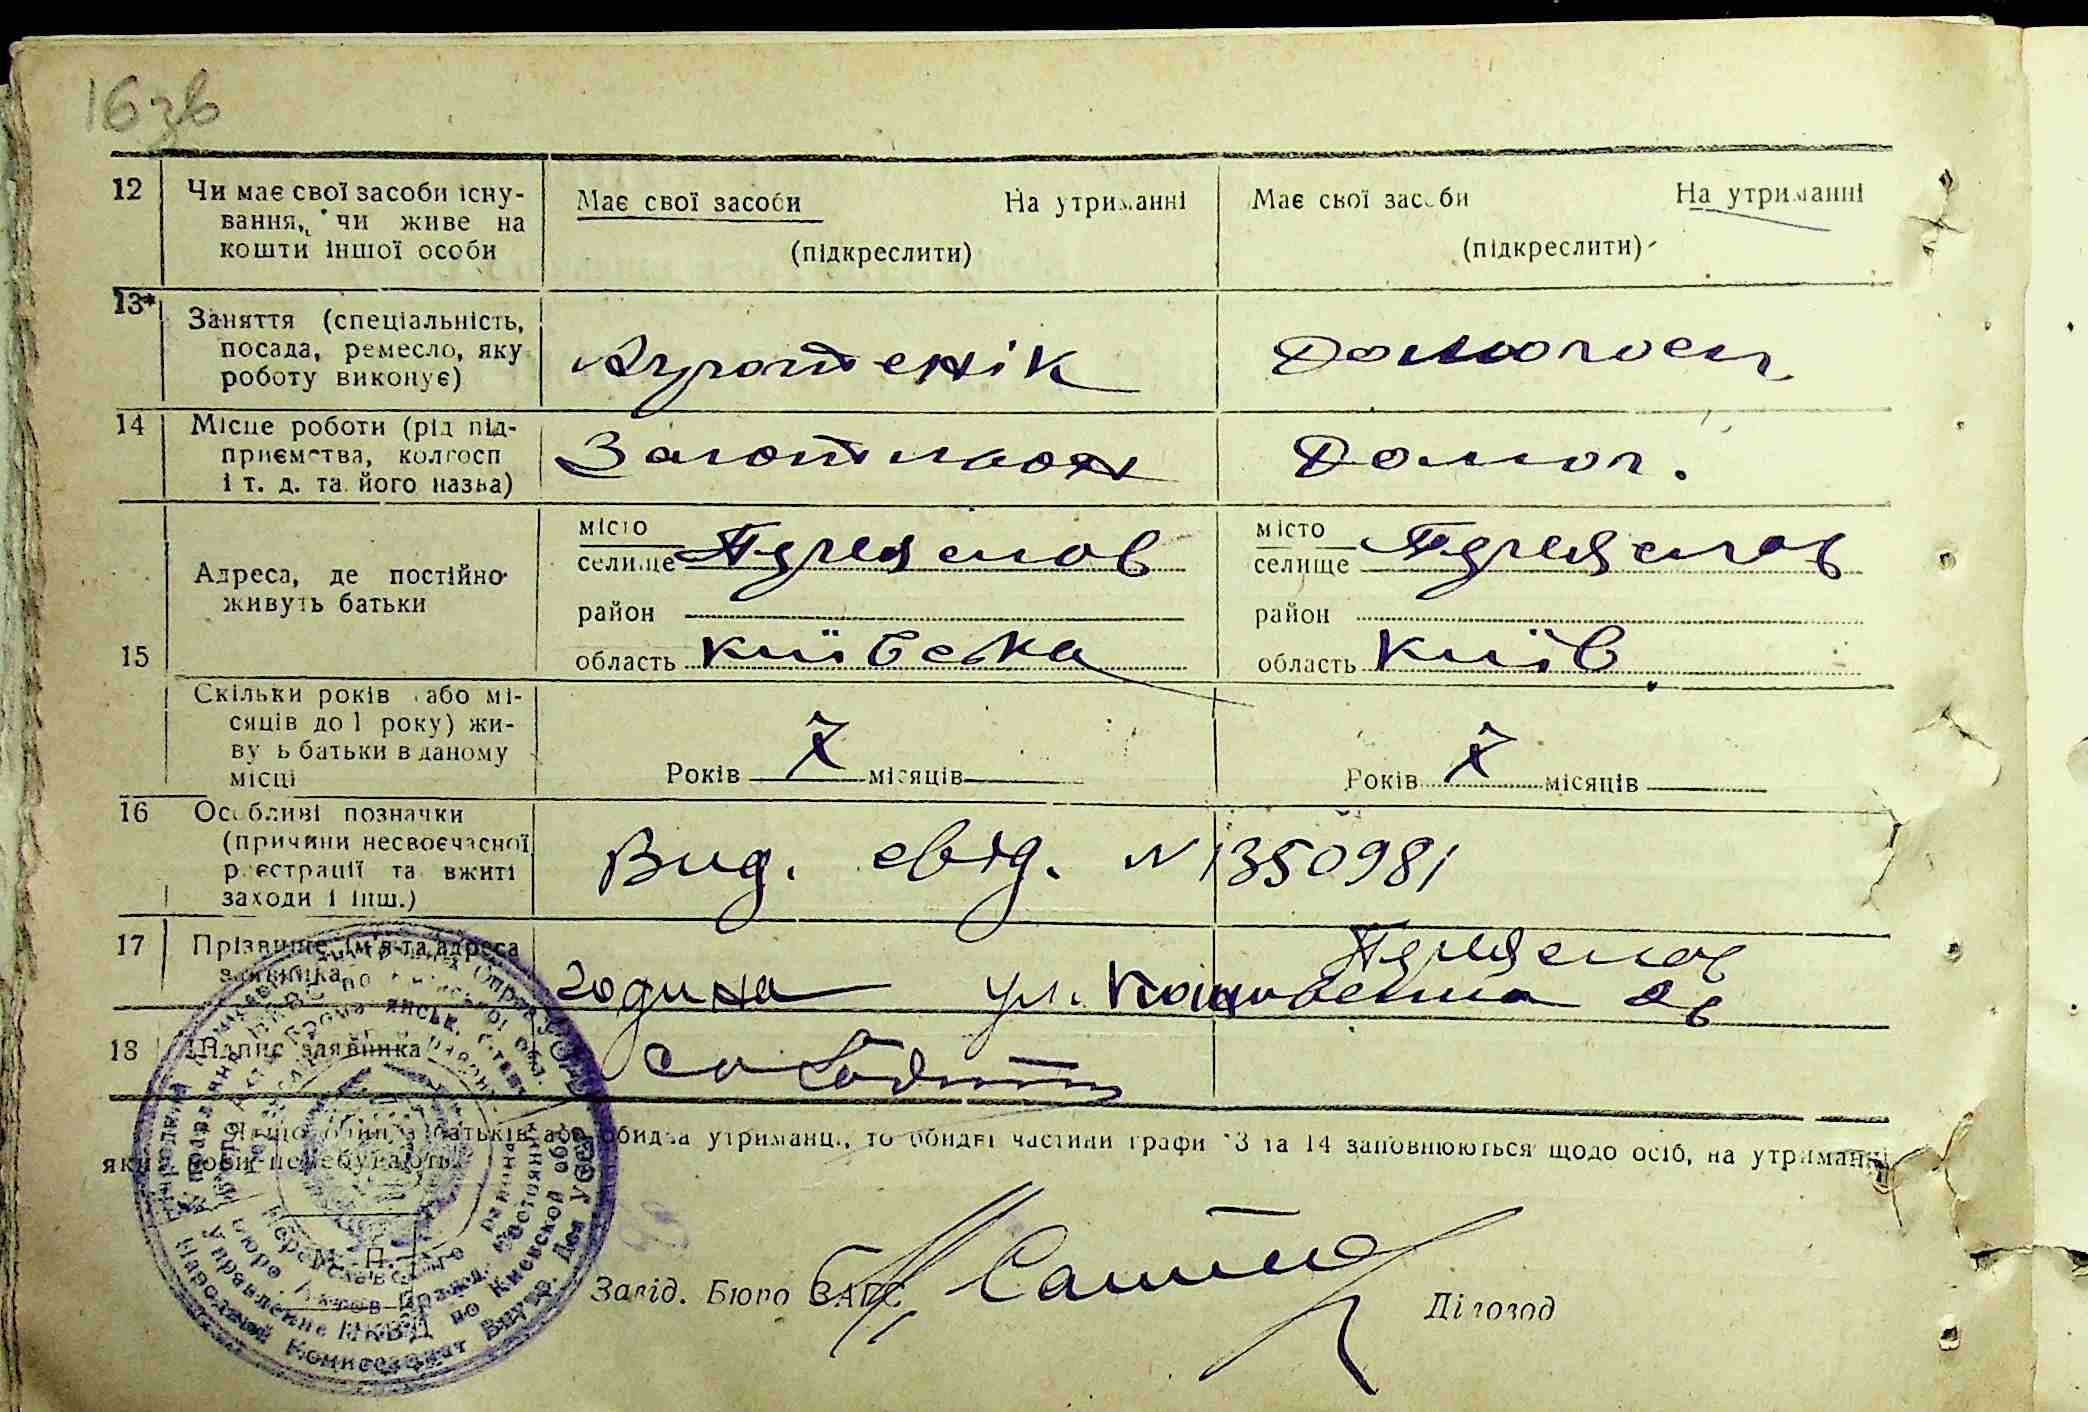 16 зв
12 Чи має свої засоби існу-
вання, чи живе на
кошти іншої особи
Має свої засоби На утриманні
(підкреслити)
Має свої засоби На утриманні
(підкреслити)
13* Заняття (спеціальність,
посада, ремесло, яку
роботу виконує)
Агротехнік
Домогосп
14 Місце роботи (рід під-
приємства, колгосп
і т. д. та його назва)
Заготльон
Домог.
15 Адреса, де постійно
живуть батьки
місто
селище Переяслов
район
область Київська
місто
селище Переяслов
район
область Київ
Скільки років або мі-
сяців до 1 року) жи-
вуть батьки в даному
місці
Років X місяців
Років X місяців
16 Особливі позначки
(причини несвоєчасної
реєстрації та вжиті
заходи і інш.)
Вид. свід. N 1350981
17 Прізвище, ім'я та адреса
заявника
Переяслов
ул.
18 Підпис заявника
Якщо один з батьків або обидва утриманці, то обидві частини графи 13 та 14 заповнюються щодо осіб, на утриманні
яких вони перебувають.
М. П.
Завід. Бюро ЗАГС
Діловод
Народный Комиссариат Внутр. Дел УССР
Управление НКВД по Киевской обл.
Бюро Актов Гражд. Состояния
Переяславского района